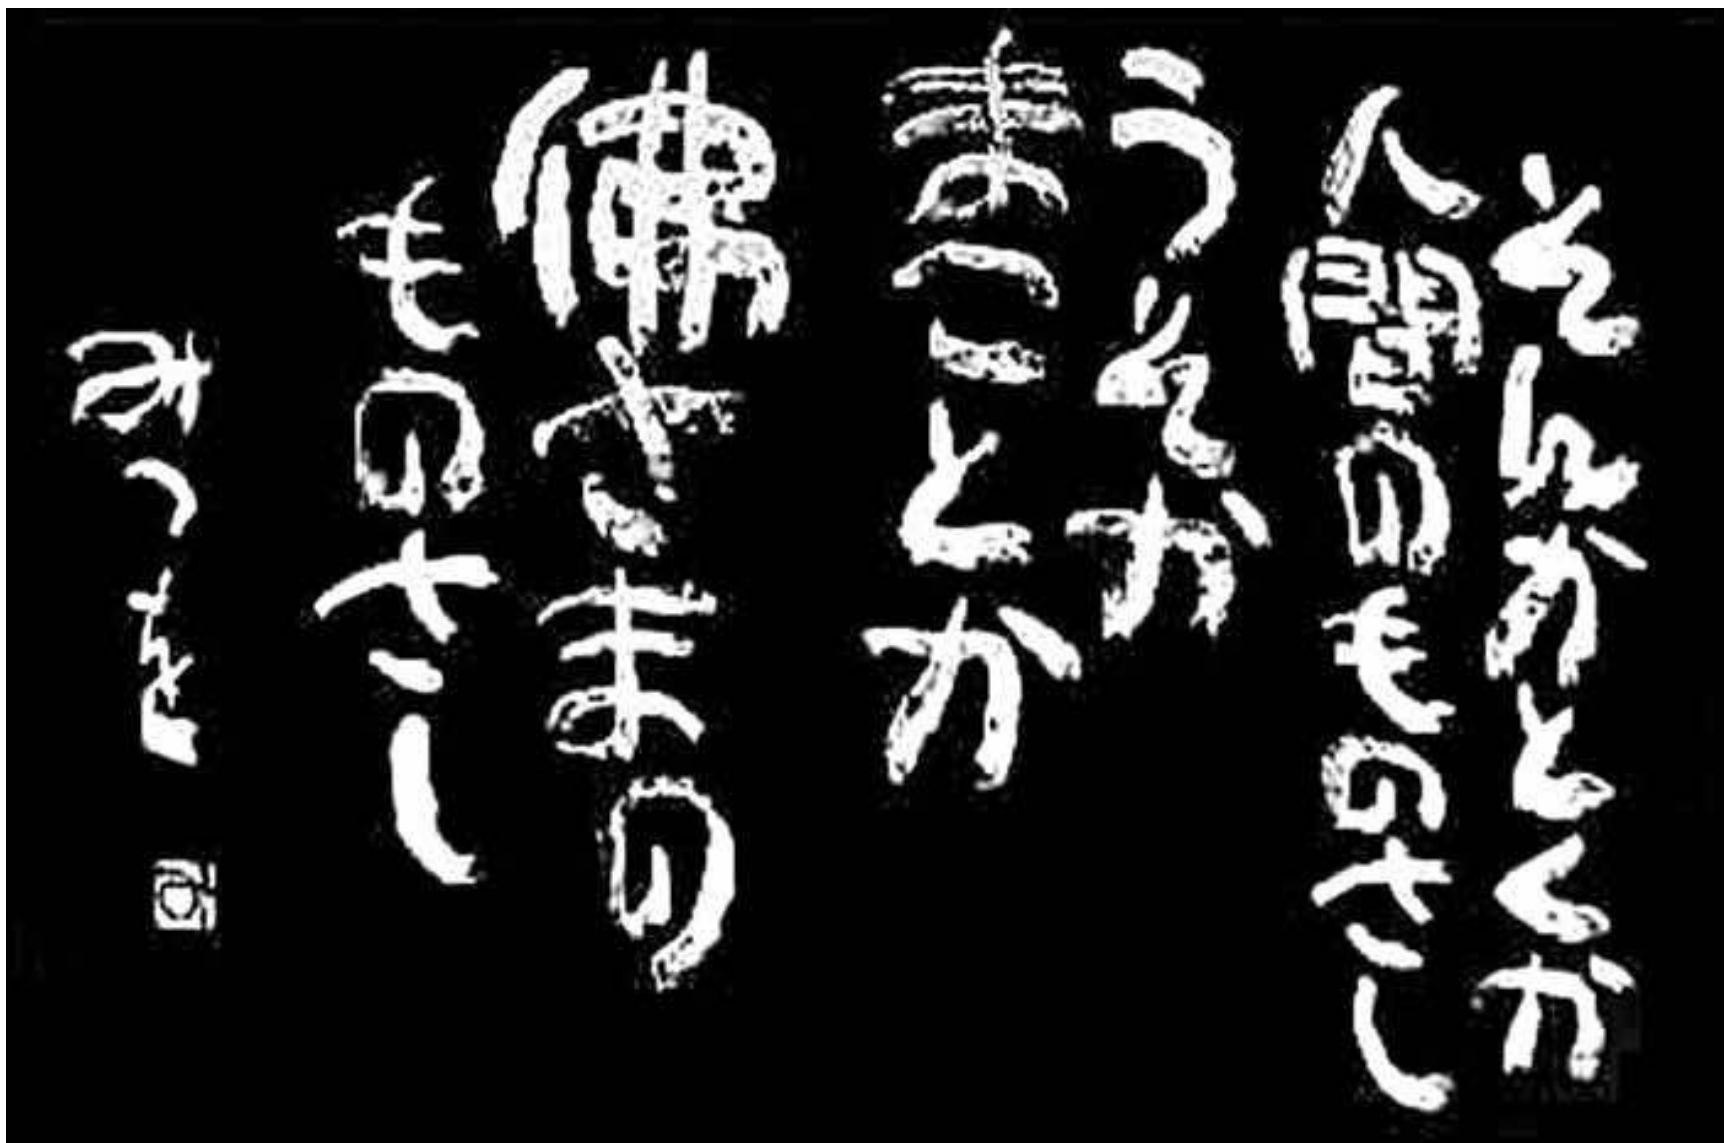 そんかとくか
人間のものさし
うそか
まことか
佛さまの
ものさし
みつを